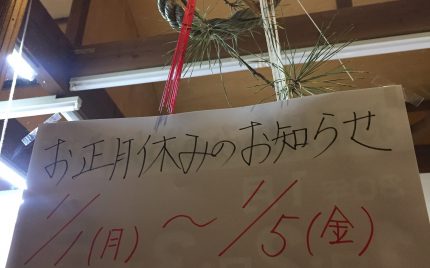 お正月休みのお知らせ
1/1(月)～1/5(金)